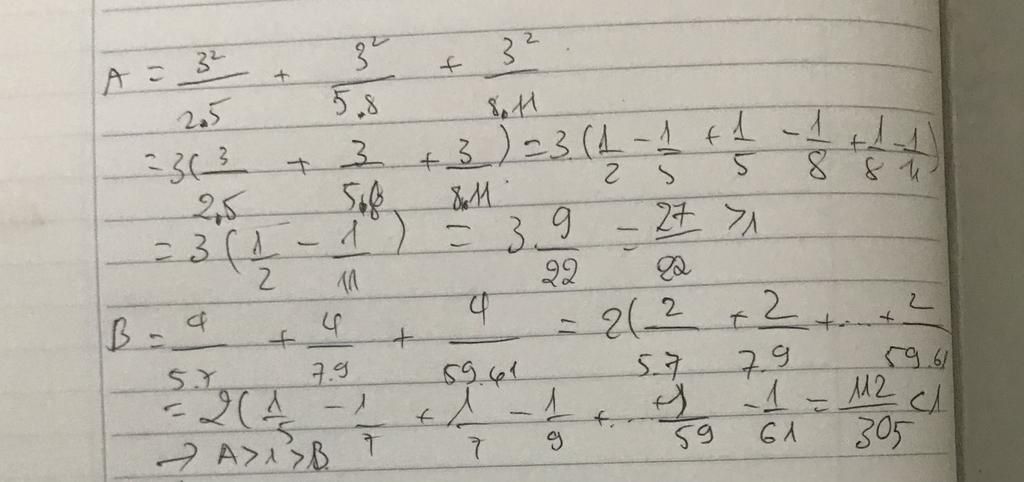 A = 3²/2.5 + 3²/5.8 + 3²/8.11
= 3(3/2.5 + 3/5.8 + 3/8.11) = 3.(1/2 - 1/5 + 1/5 - 1/8 + 1/8 - 1/11)
= 3(1/2 - 1/11) = 3.9/22 = 27/22 >1
B = 4/5.7 + 4/7.9 + 4/59.61 = 2(2/5.7 + 2/7.9 + ... + 2/59.61
= 2(1/5 - 1/7 + 1/7 - 1/9 + ... + 1/59 - 1/61 = 112/305 <1
→ A > 1 > B